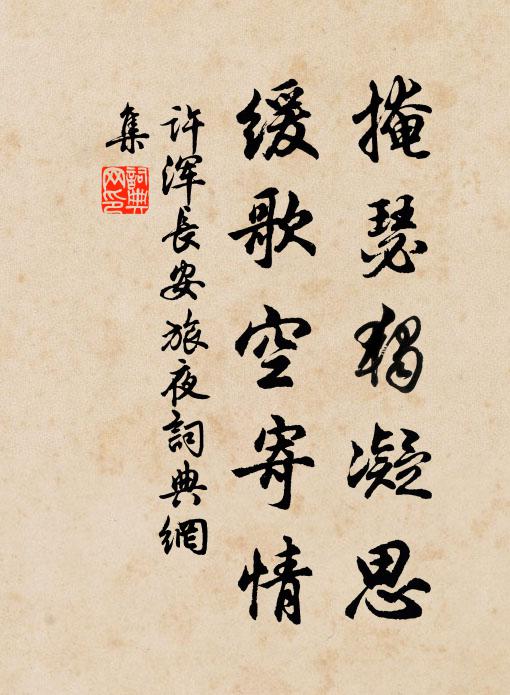 掩瑟独凝思
缓歌空寄情
许浑长安旅夜詞典網
集
詞典
网印